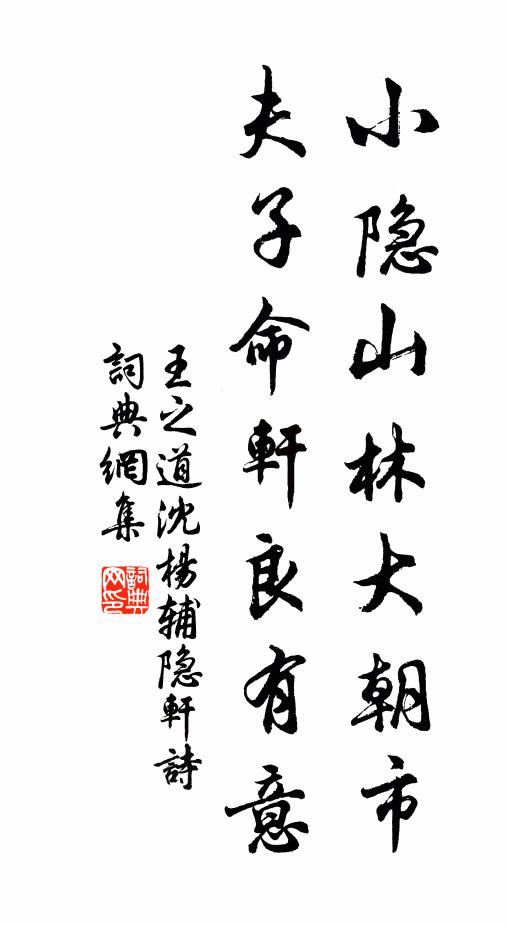 小隐山林大朝市
夫子命軒良有意
王之道沈楊辅隐軒詩
詞典網集
詞典网印